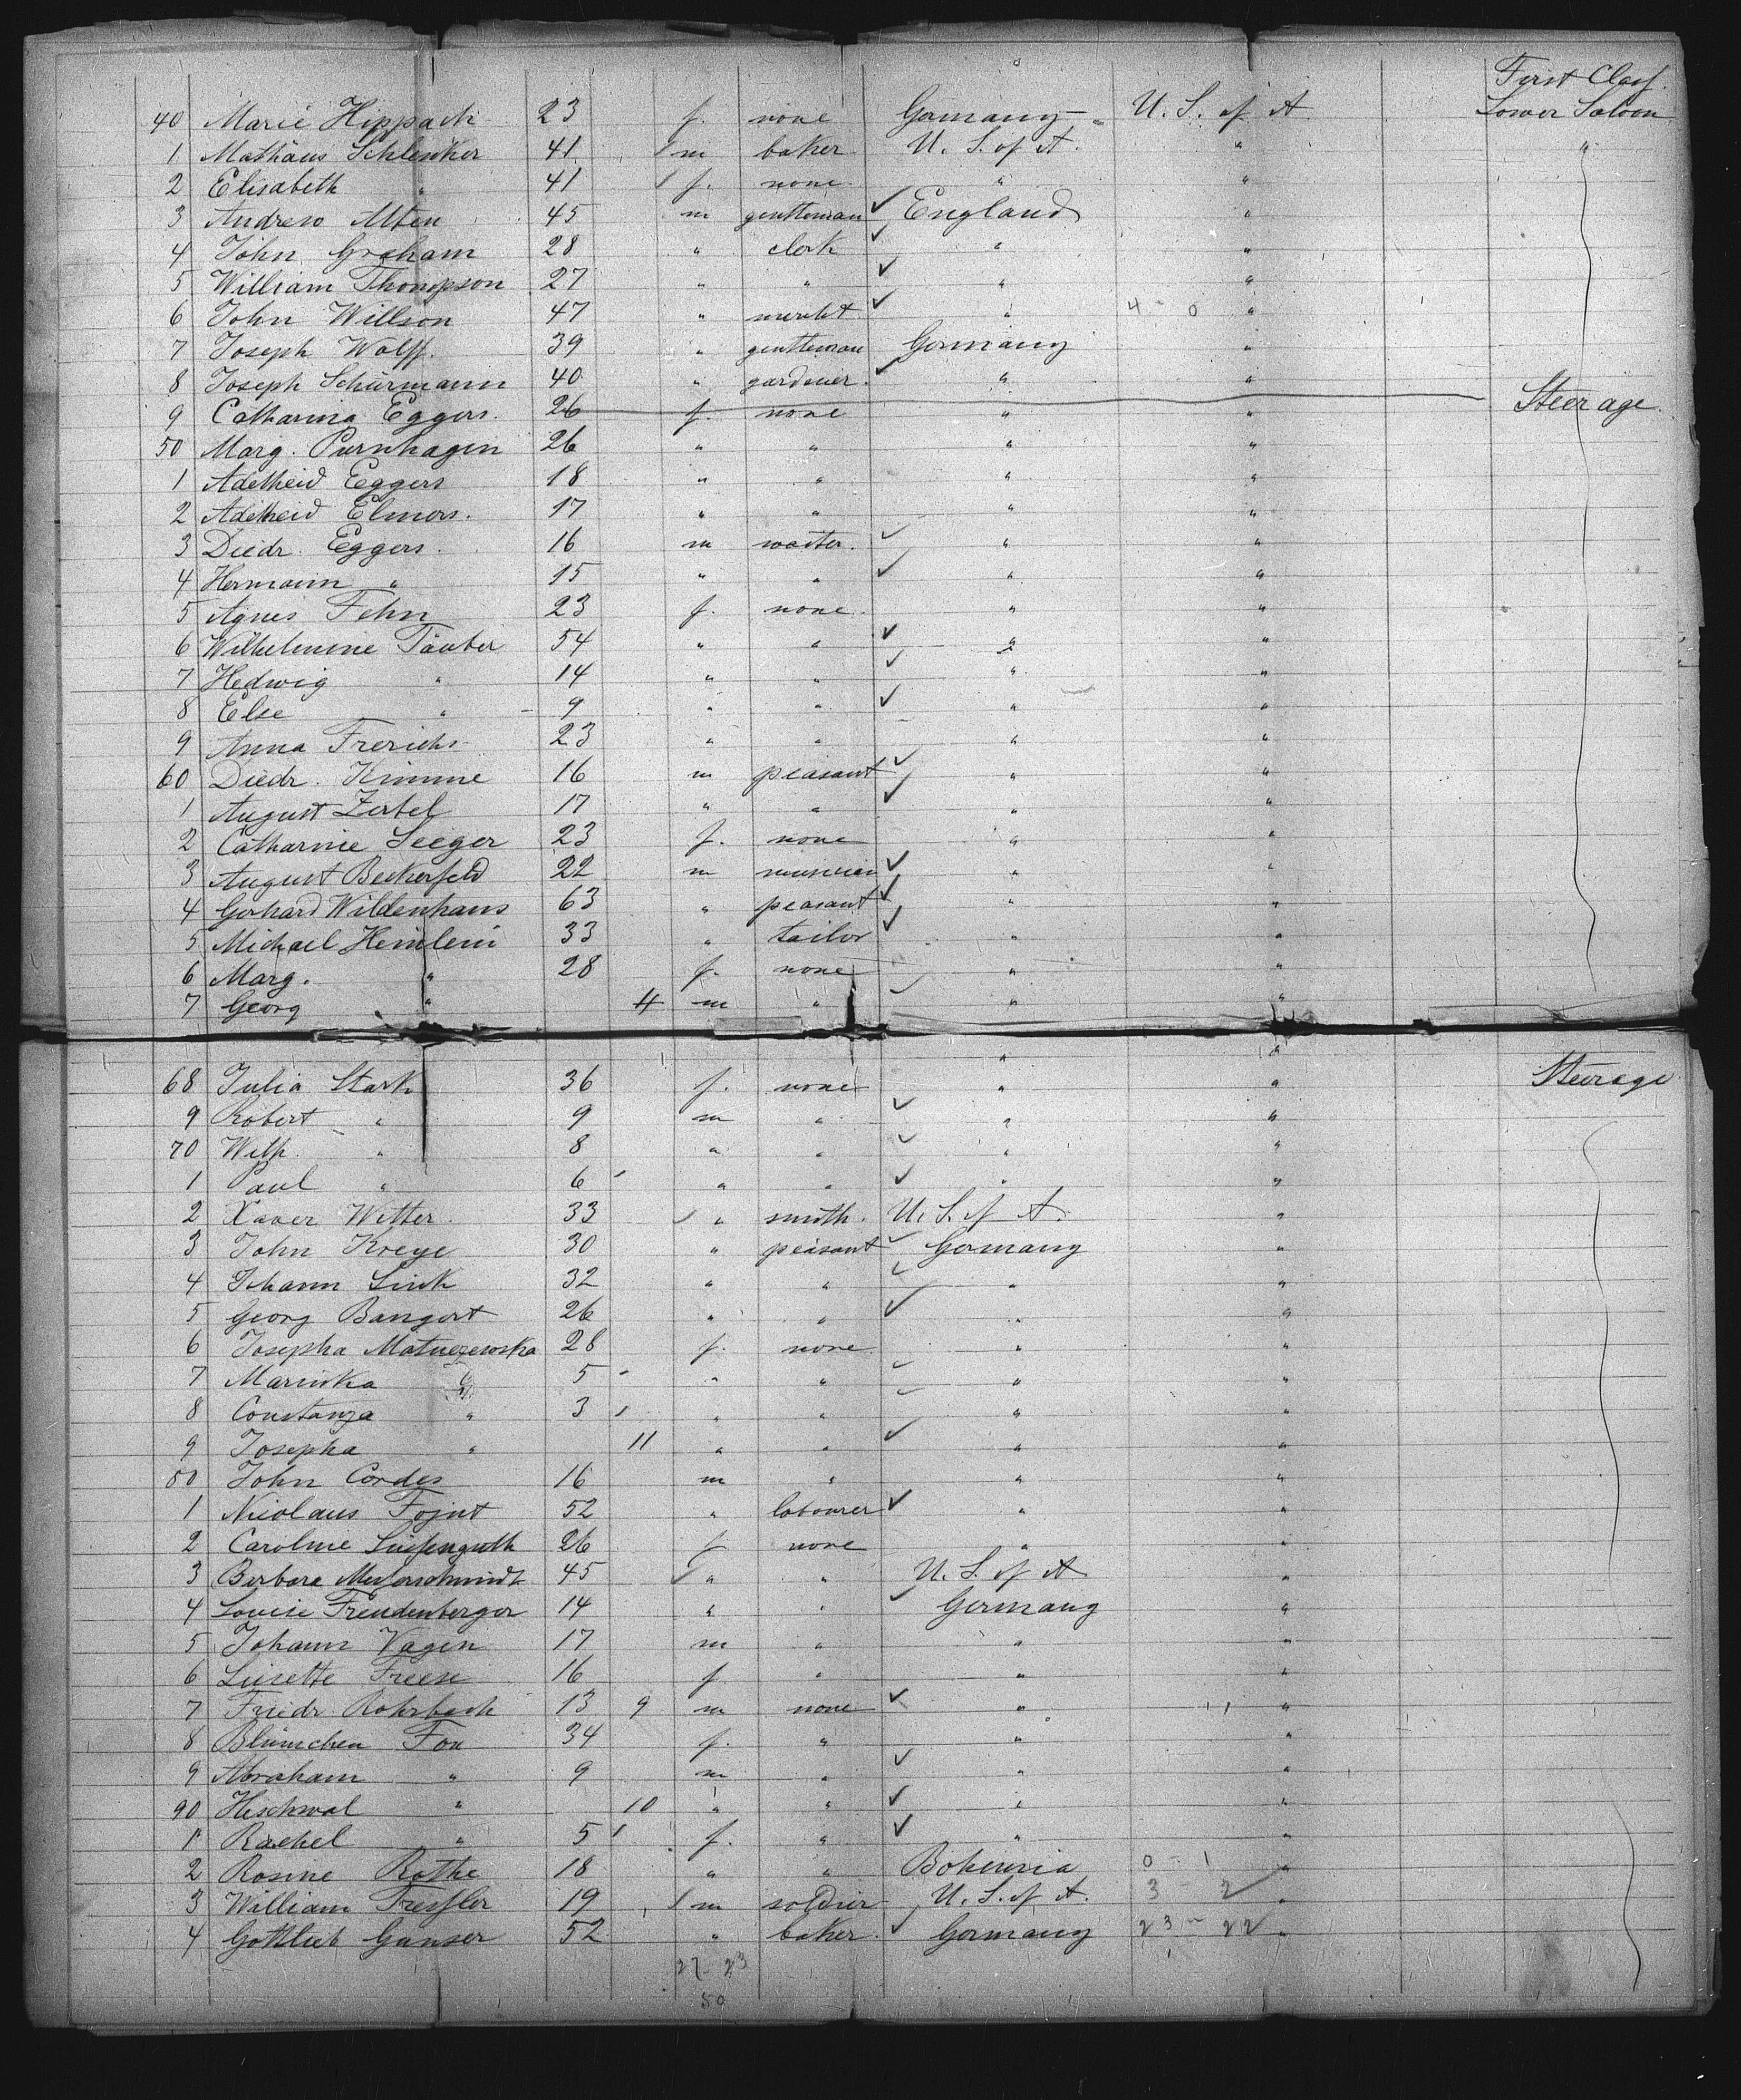 First Class
40 Marie Hippach 23 f. none Germany U. S. of A. Lower Saloon
1 Mathäus Schlenker 41 m baker U. S. of A. " "
2 Elisabeth " 41 f. none " "
3 Andrew Alten 45 m gentleman England "
4 John Graham 28 " clerk " "
5 William Thompson 27 " " " "
6 John Willson 47 " mercht. " 4 - 0 "
7 Joseph Wolff. 39 " gentleman Germany "
8 Joseph Schürmann 40 " gardener. " "
9 Catharina Eggers. 26 f. none " " Steerage
50 Marg. Purnhagen 26 " " " "
1 Adelheid Eggers 18 " " " "
2 Adelheid Elmers. 17 " " " "
3 Diedr. Eggers. 16 m waiter. " "
4 Hermann " 15 " " " "
5 Agnes Fehn 23 f. none. " "
6 Wilhelmine Täuber 54 " " " "
7 Hedwig " 14 " " " "
8 Else " 9 " " " "
9 Anna Frerichs 23 " " " "
60 Diedr. Kimme 16 m peasant " "
1 August Zertel 17 " " " "
2 Catharine Seeger 23 f. none " "
3 August Beckerfeld 22 m musician " "
4 Gerhard Wildenhaus 63 " peasant " "
5 Michael Heinlein 33 " tailor " "
6 Marg. " 28 f. none " "
7 Georg " 4 m " " "
" "
68 Julia Stark 36 f. none " " Steerage
9 Robert " 9 m " " "
70 Wilh. " 8 " " " "
1 Paul " 6 " " " "
2 Xaver Witter. 33 " smith. U. S. of A. "
3 John Kreye 30 " peasant Germany "
4 Johann Link 32 " " " "
5 Georg Bangert 26 " " " "
6 Josepha Matuczewska 28 f. none " "
7 Marinka " 5 " " " "
8 Constanza " 3 " " " "
9 Josepha " 11 " " " "
80 John Cordes 16 m " " "
1 Nicolaus Fojut 52 " labourer " "
2 Caroline 26 f none " "
3 Barbara Messerschmidt 45 " " U. S. of A "
4 Louise Freudenberger 14 " " Germany "
5 Johann Vagen 17 m " " "
6 Lisette Freese 16 f " " "
7 Friedr Rohrbach 13 9 m none " "
8 Blümchen Fox 34 f. " " "
9 Abraham " 9 m " " "
90 Heschwal " 10 " " " "
1 Rachel " 5 f. " " "
2 Rosine Rothe 18 " " Bohemia 0 - 1 "
3 William Tressler 19 m soldier U. S. of A. 3 - 2 "
4 Gottlieb Ganser 52 " baker. Germany 23 - 22 "
27 - 23
50